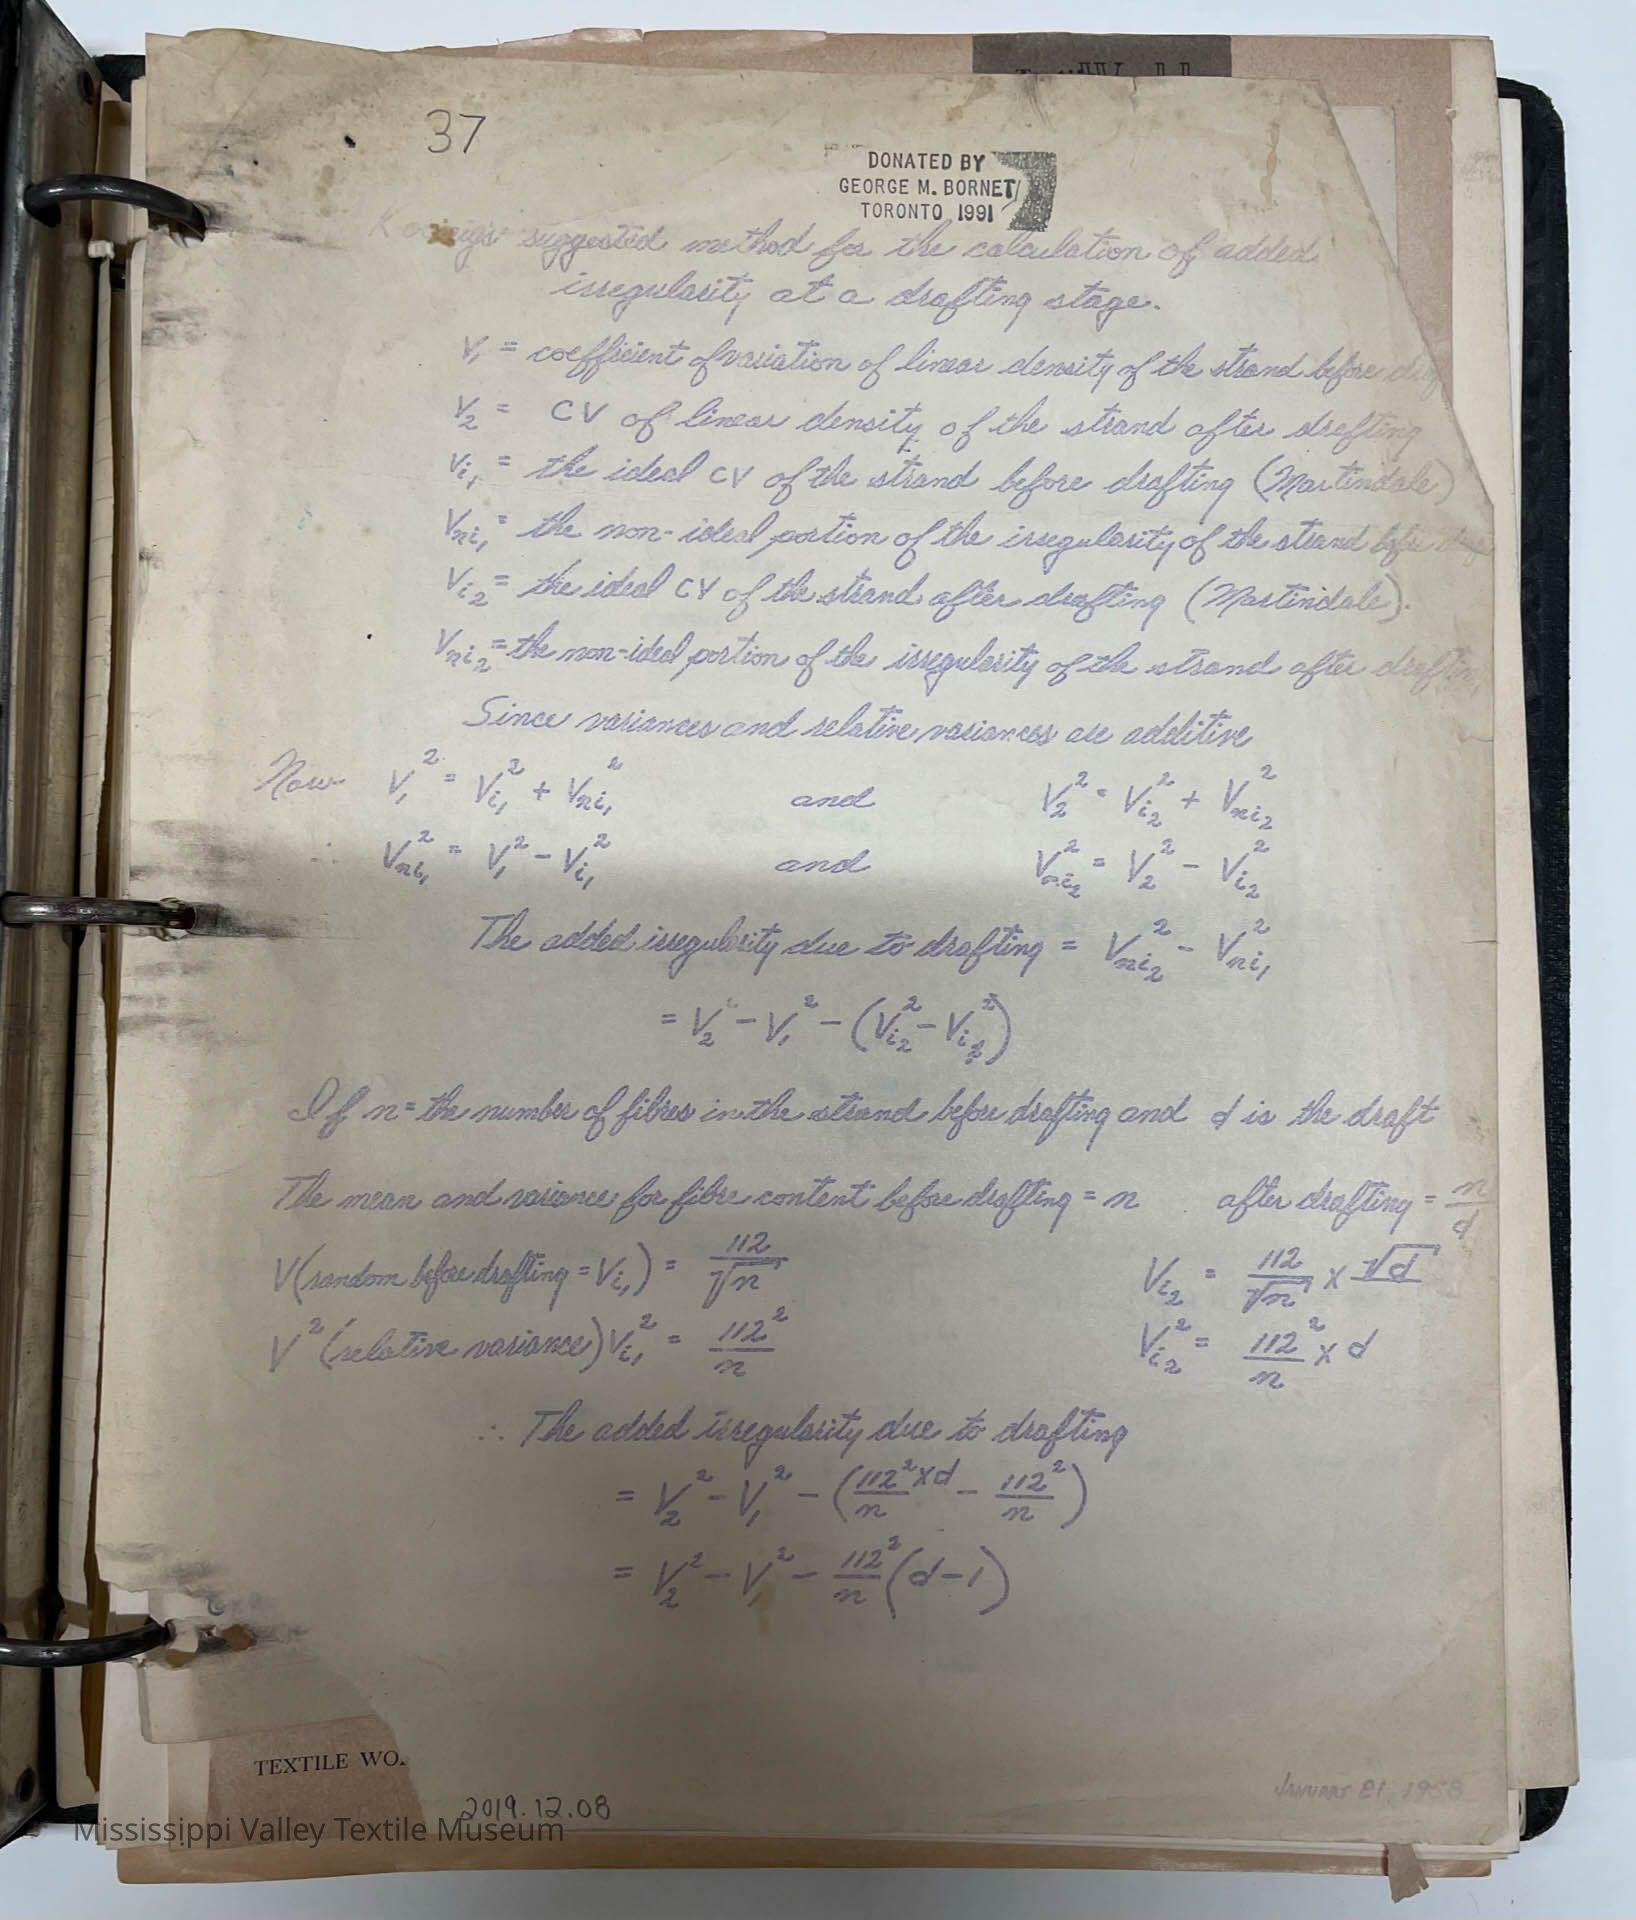 37
DONATED BY
GEORGE M. BORNET
TORONTO 1991
suggested method for the calculation of added
irregularity at a drafting stage.
V₁ = coefficient of variation of linear density of the strand before
V₂ = CV of linear density of the strand after drafting
Vi₁ = the ideal CV of the strand before drafting (Martindale)
Vni₁ = the non-ideal portion of the irregularity of the strand before
Vi₂ = the ideal CV of the strand after drafting (Martindale).
Vni₂ = the non-ideal portion of the irregularity of the strand after drafting
Since variances and relative variances are additive
Now V₁² = Vi₁² + Vni₁² and V₂² = Vi₂² + Vni₂²
∴ Vni₁² = V₁² - Vi₁² and Vni₂² = V₂² - Vi₂²
The added irregularity due to drafting = Vni₂² - Vni₁²
= V₂² - V₁² - (Vi₂² - Vi₂²)
If n = the number of fibres in the strand before drafting and d is the draft
The mean and variance for fibre content before drafting = n after drafting = n/d
V (random before drafting = Vi₁) = 112/√n Vi₂ = 112/√n x √d
V² (relative variance) Vi₁² = 112²/n Vi₂² = 112²/n x d
∴ The added irregularity due to drafting
= V₂² - V₁² - (112² x d/n - 112²/n)
= V₂² - V₁² - 112²/n (d-1)
TEXTILE WO
2019.12.08
Mississippi Valley Textile Museum
JANUARY 21, 1958